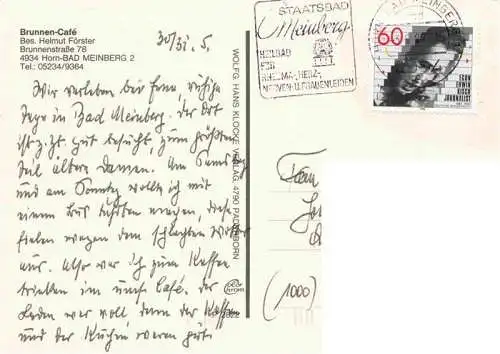 Brunnen-Café
Bes. Helmut Förster
Brunnenstraße 78
4934 Horn-BAD MEINBERG 2
Tel.: 05234/9364
30/31. 5.
Wir verleben bei Frau, ruhige
Tage in Bad Meinberg. Der Ort
ist z.Zt. gut besucht, zum größten
Teil ältere Damen. Am Samstag
und am Sonntag wollte ich mit
einem Bus machen, diese
fielen wegen dem schlechten Wetter
aus. Also war ich zum Kaffee
trinken im Café. Der
Laden war voll denn der Kaffee
und der Kuchen waren gut.
WOLFG. HANS KLOCKE VERLAG, 4790 PADERBORN
STAATSBAD
Meinberg
HEILBAD
FÜR
RHEUMA-, HERZ-,
NERVEN- U. FRAUENLEIDEN
MEINBERG
60
EGON
ERWIN
KISCH
JOURNALIST
Fam
(1000)